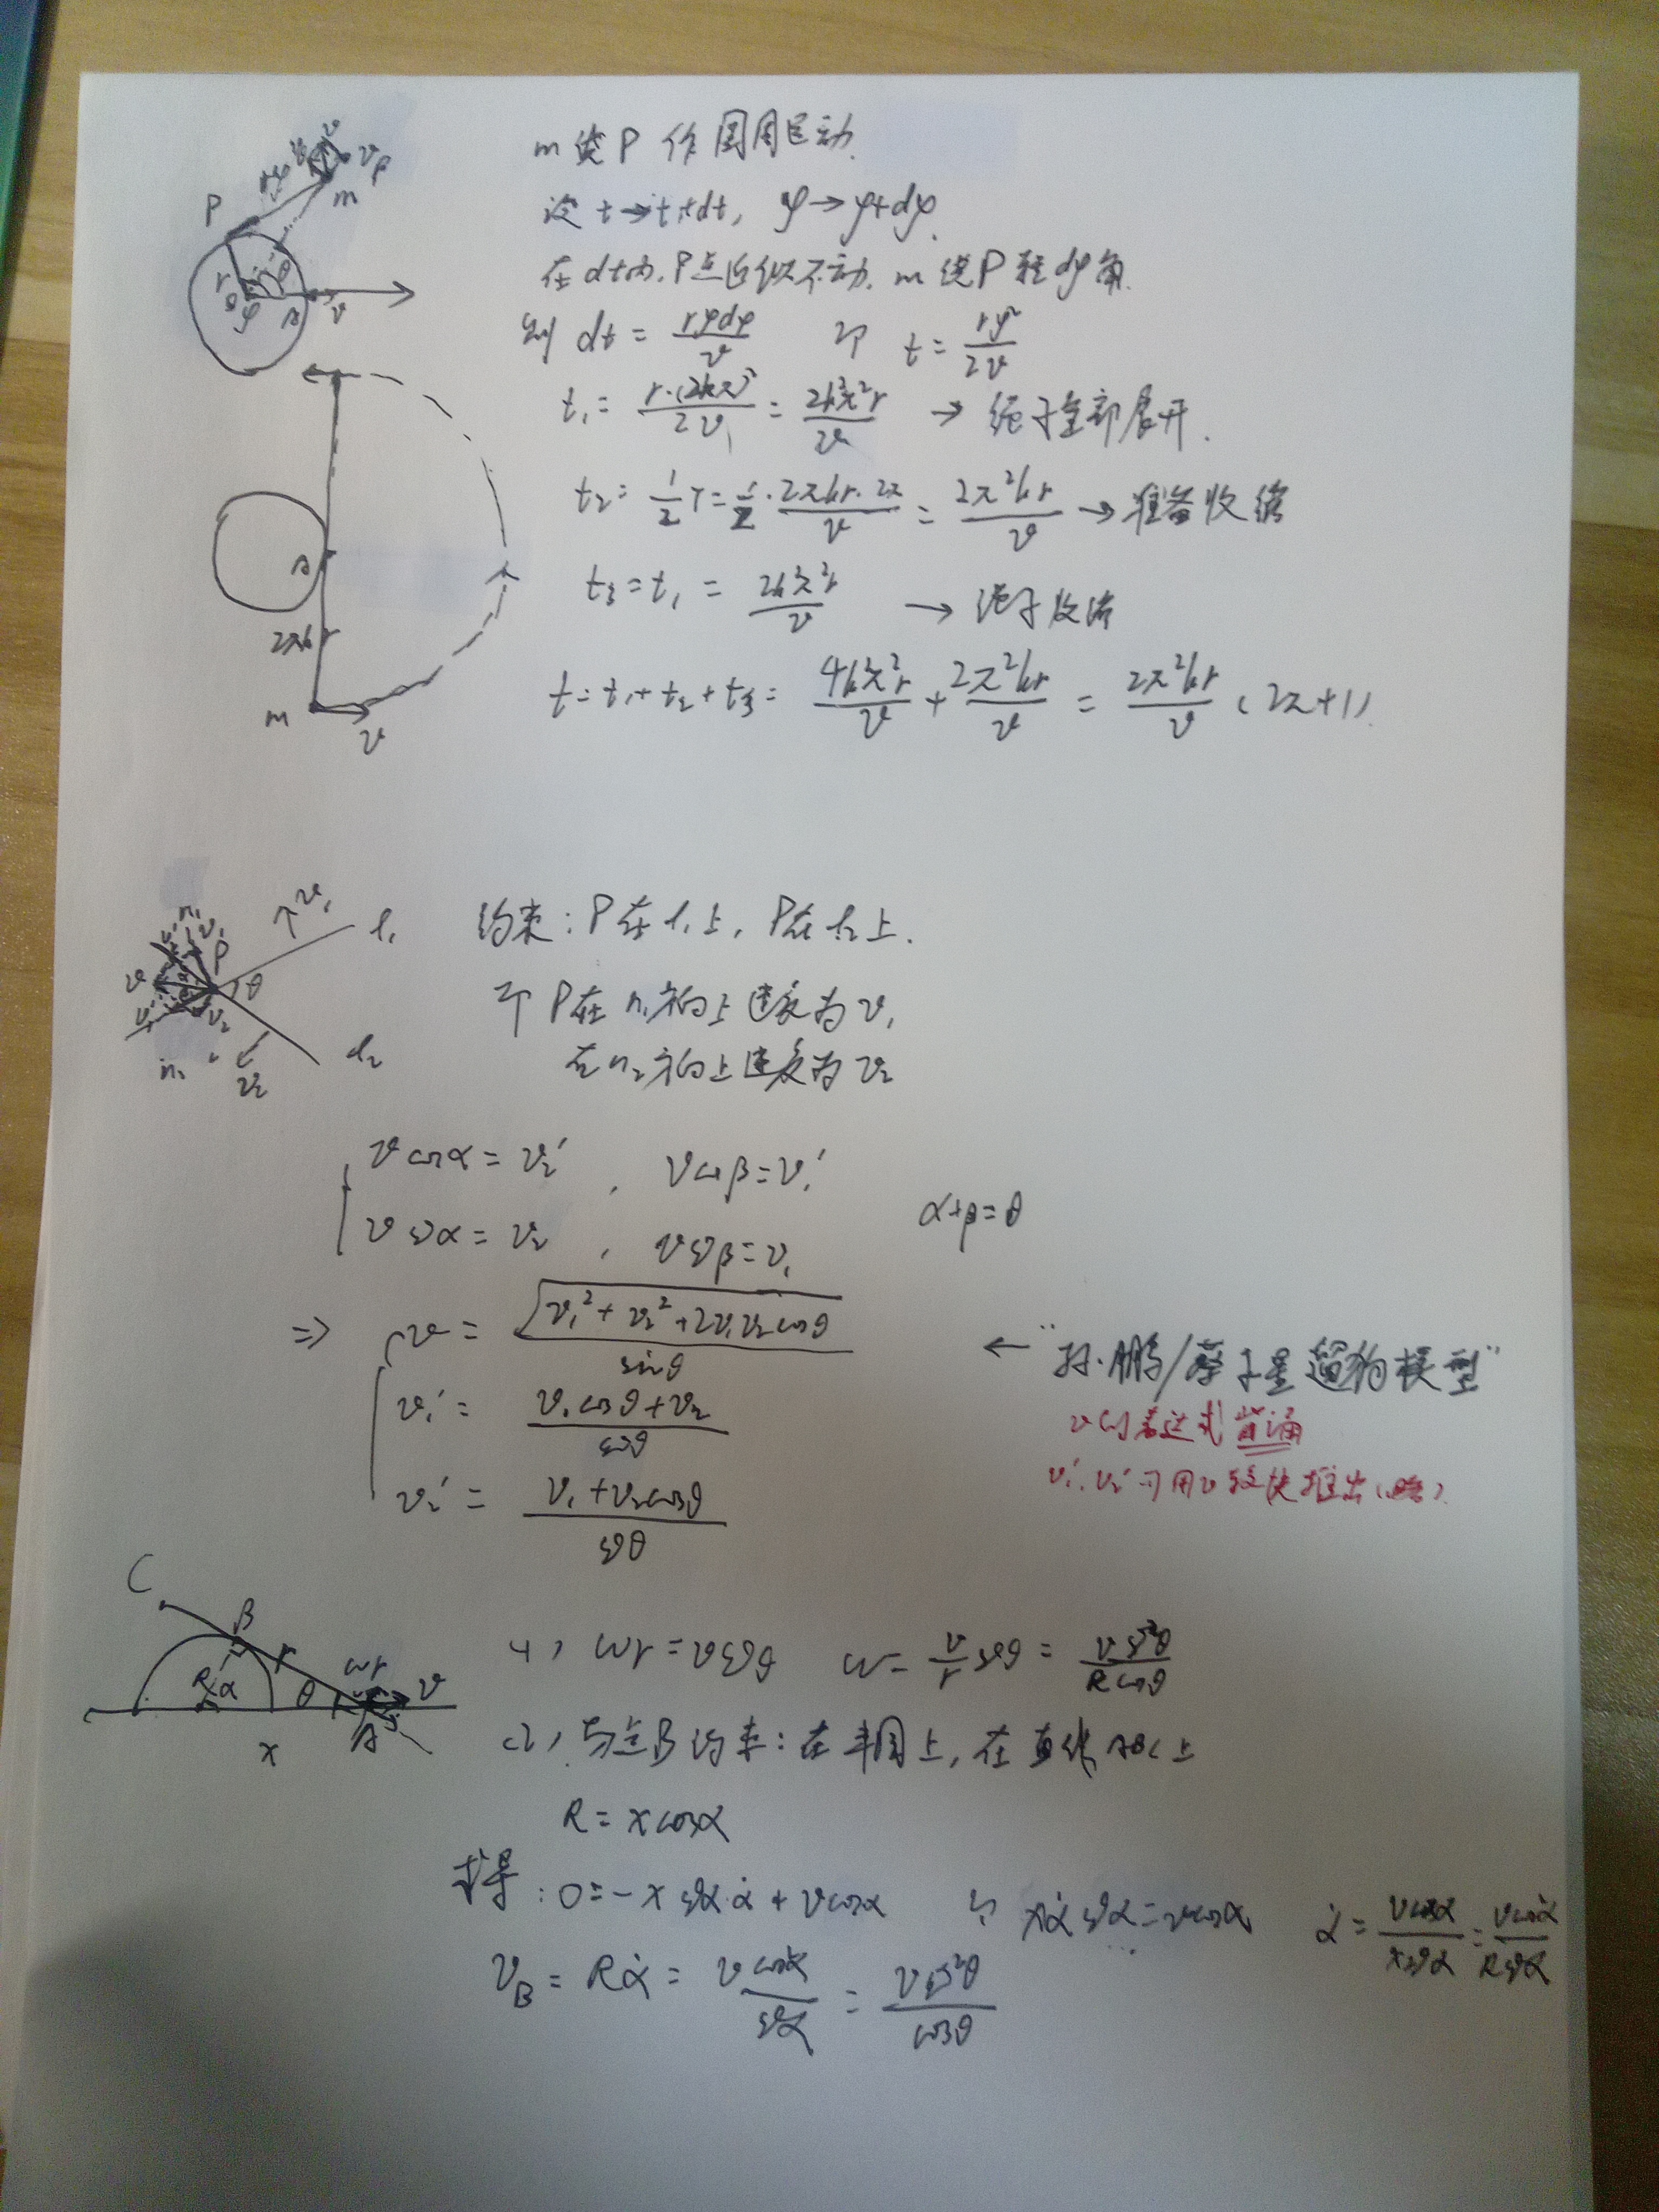 m绕P作圆周运动.
设 t→t+dt, φ→φ+dφ.
在dt内.P点近似不动. m绕P转dφ角.
则 dt = rφdφ/v 即 t = rφ²/2v
t₁ = r·(2kπ)²/2v = 2k²π²r/v → 绳子全部展开.
t₂ = ½T = ½·2πkr·2π/v = 2π²kr/v → 准备收绳
t₃ = t₁ = 2k²π²r/v → 绳子收
t = t₁+t₂+t₃ = 4k²π²r/v + 2π²kr/v = 2π²kr/v (2π+1)
P m r θ φ A v
A 2πkr m v
约束: P在l₁上, P在l₂上.
即 P在n₁方向上速度为v₁
在n₂方向上速度为v₂
v₁ l₁ P θ v₂ l₂
v cosα = v₂′, v cosβ = v₁′
v sinα = v₂, v sinβ = v₁ α+β=θ
⇒ v = √(v₁²+v₂²+2v₁v₂cosθ)/sinθ ←
v₁′ = (v₁cosθ+v₂)/sinθ
v₂′ = (v₁+v₂cosθ)/sinθ
v的表达式背诵
v₁′, v₂′可用v较快推出(略).
C B r ωr R α θ v A x
(1) ωr = v sinθ ω = v/r sinθ = v sin²θ/R cosθ
(2) 切点B约束: 在半圆上, 在直线ABC上
R = x cosα
求导: 0 = -x sinα·α̇ + v cosα 即 xα̇ sinα = v cosα α̇ = v cosα/x sinα = v cos²α/R sinα
v_B = Rα̇ = v cos²α/sinα = v sin²θ/cosθ